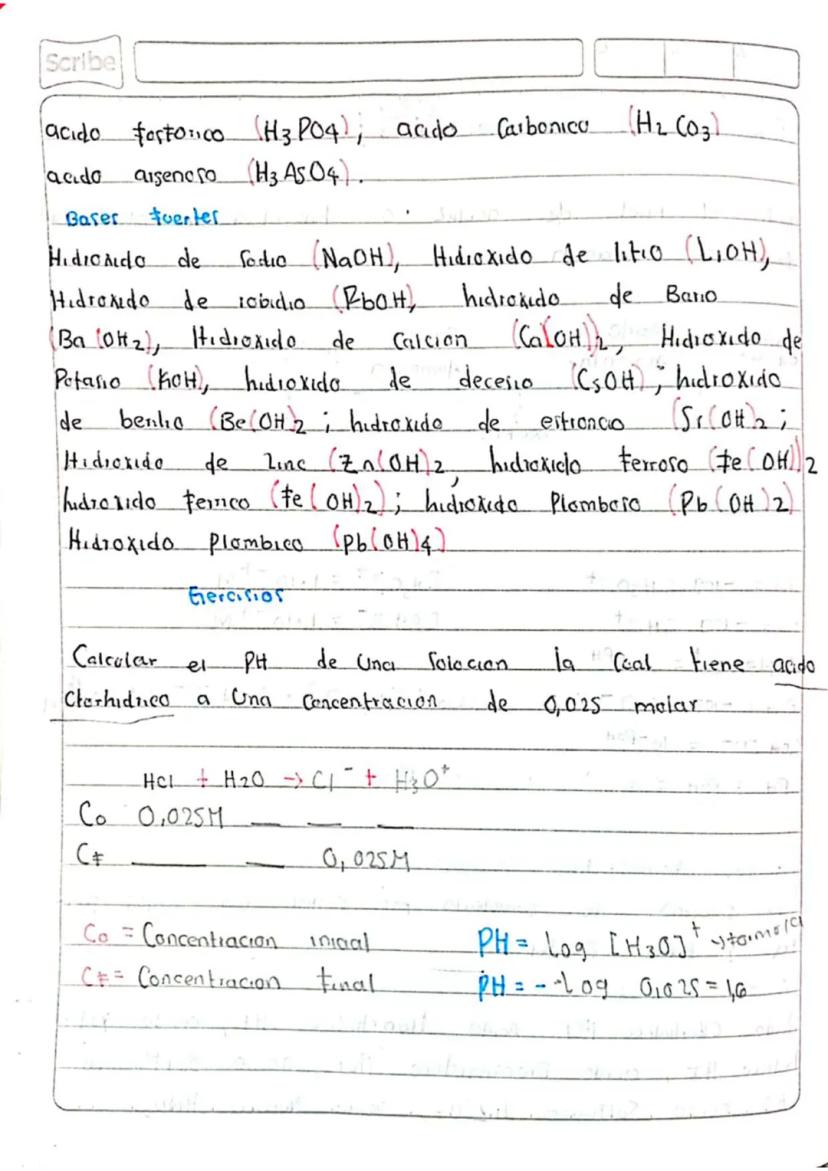 Scribe
acido fosforico (H3PO4); acido Carbonico (H2CO3)
acido arsenoso (H3AsO4).
Bases fuertes
Hidroxido de Sodio (NaOH), Hidroxido de litio (LiOH),
Hidroxido de robidio (RbOH), hidroxido de Bario
(Ba(OH2), Hidroxido de Calcion (Ca(OH))2, Hidroxido de
Potasio (KOH), hidroxido de decesio (CsOH); hidroxido
de berilio (Be(OH)2; hidroxido de estroncio (Sr(OH)2;
Hidroxido de Zinc (Zn(OH)2, hidroxido ferroso (Fe(OH))2
hidroxido ferrico (Fe(OH)2); hidroxido Plomboso (Pb(OH)2)
Hidroxido Plombico (Pb(OH)4)
Ejercisios
Calcular el PH de Una Solocion la Cual tiene acido
Clorhidrico a Una Concentracion de 0,025 molar
HCl + H2O → Cl⁻ + H3O⁺
Co 0,025M — — —
CF — — 0,025M
Co = Concentracion inicial PH = Log [H3O]⁺
CF = Concentracion final PH = - Log 0,025 = 1,6